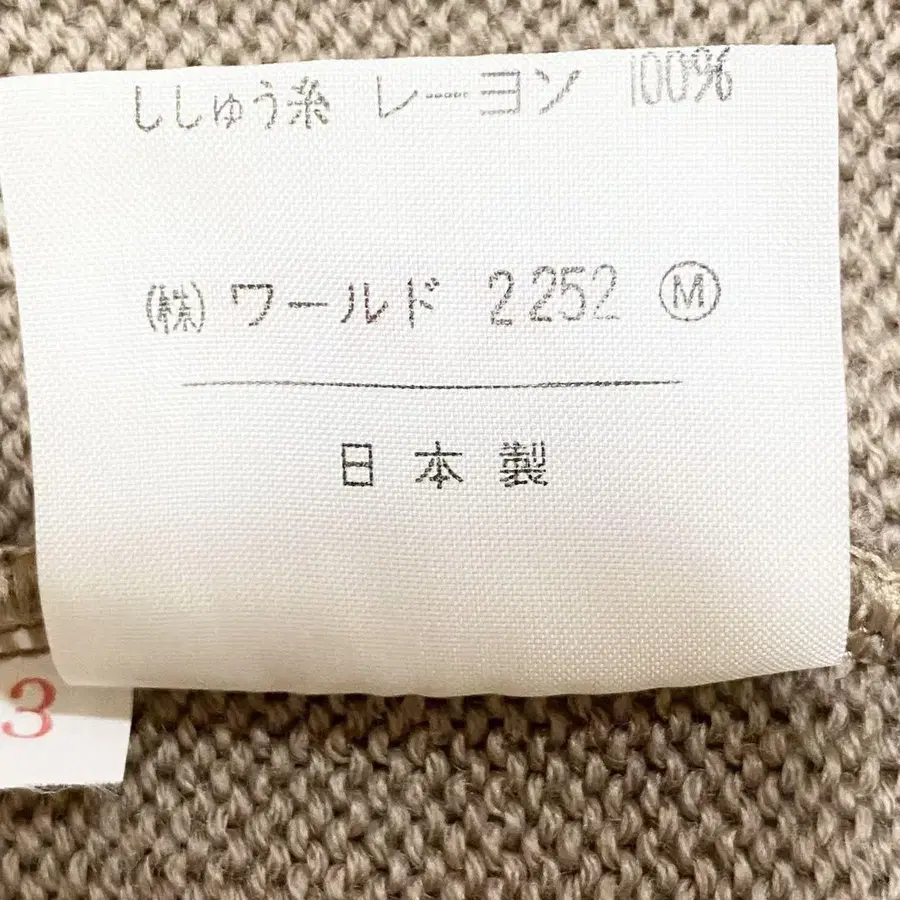 ししゅう糸 レーヨン 100%
㈱ ワールド 2252 Ⓜ
日本製
3